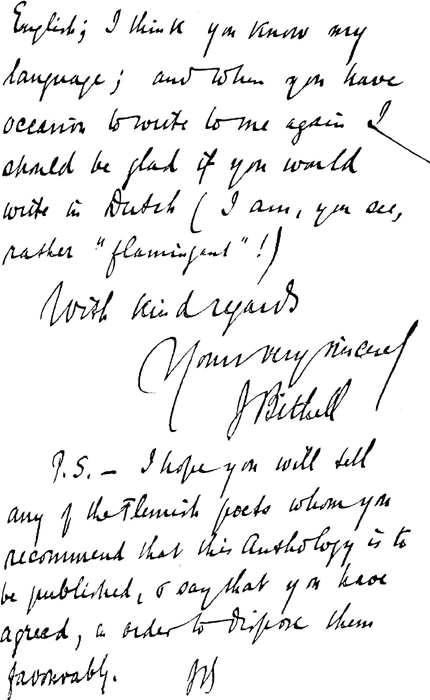 English; I think you know my
language; and when you have
occasion to write to me again I
should be glad if you would
write in Dutch (I am, you see,
rather "flamingant"!)
With kind regards
Yours very sincerely
J Bithell
P.S. — I hope you will tell
any of the Flemish poets whom you
recommend that this Anthology is to
be published, & say that you have
agreed, in order to dispose them
favourably. JB